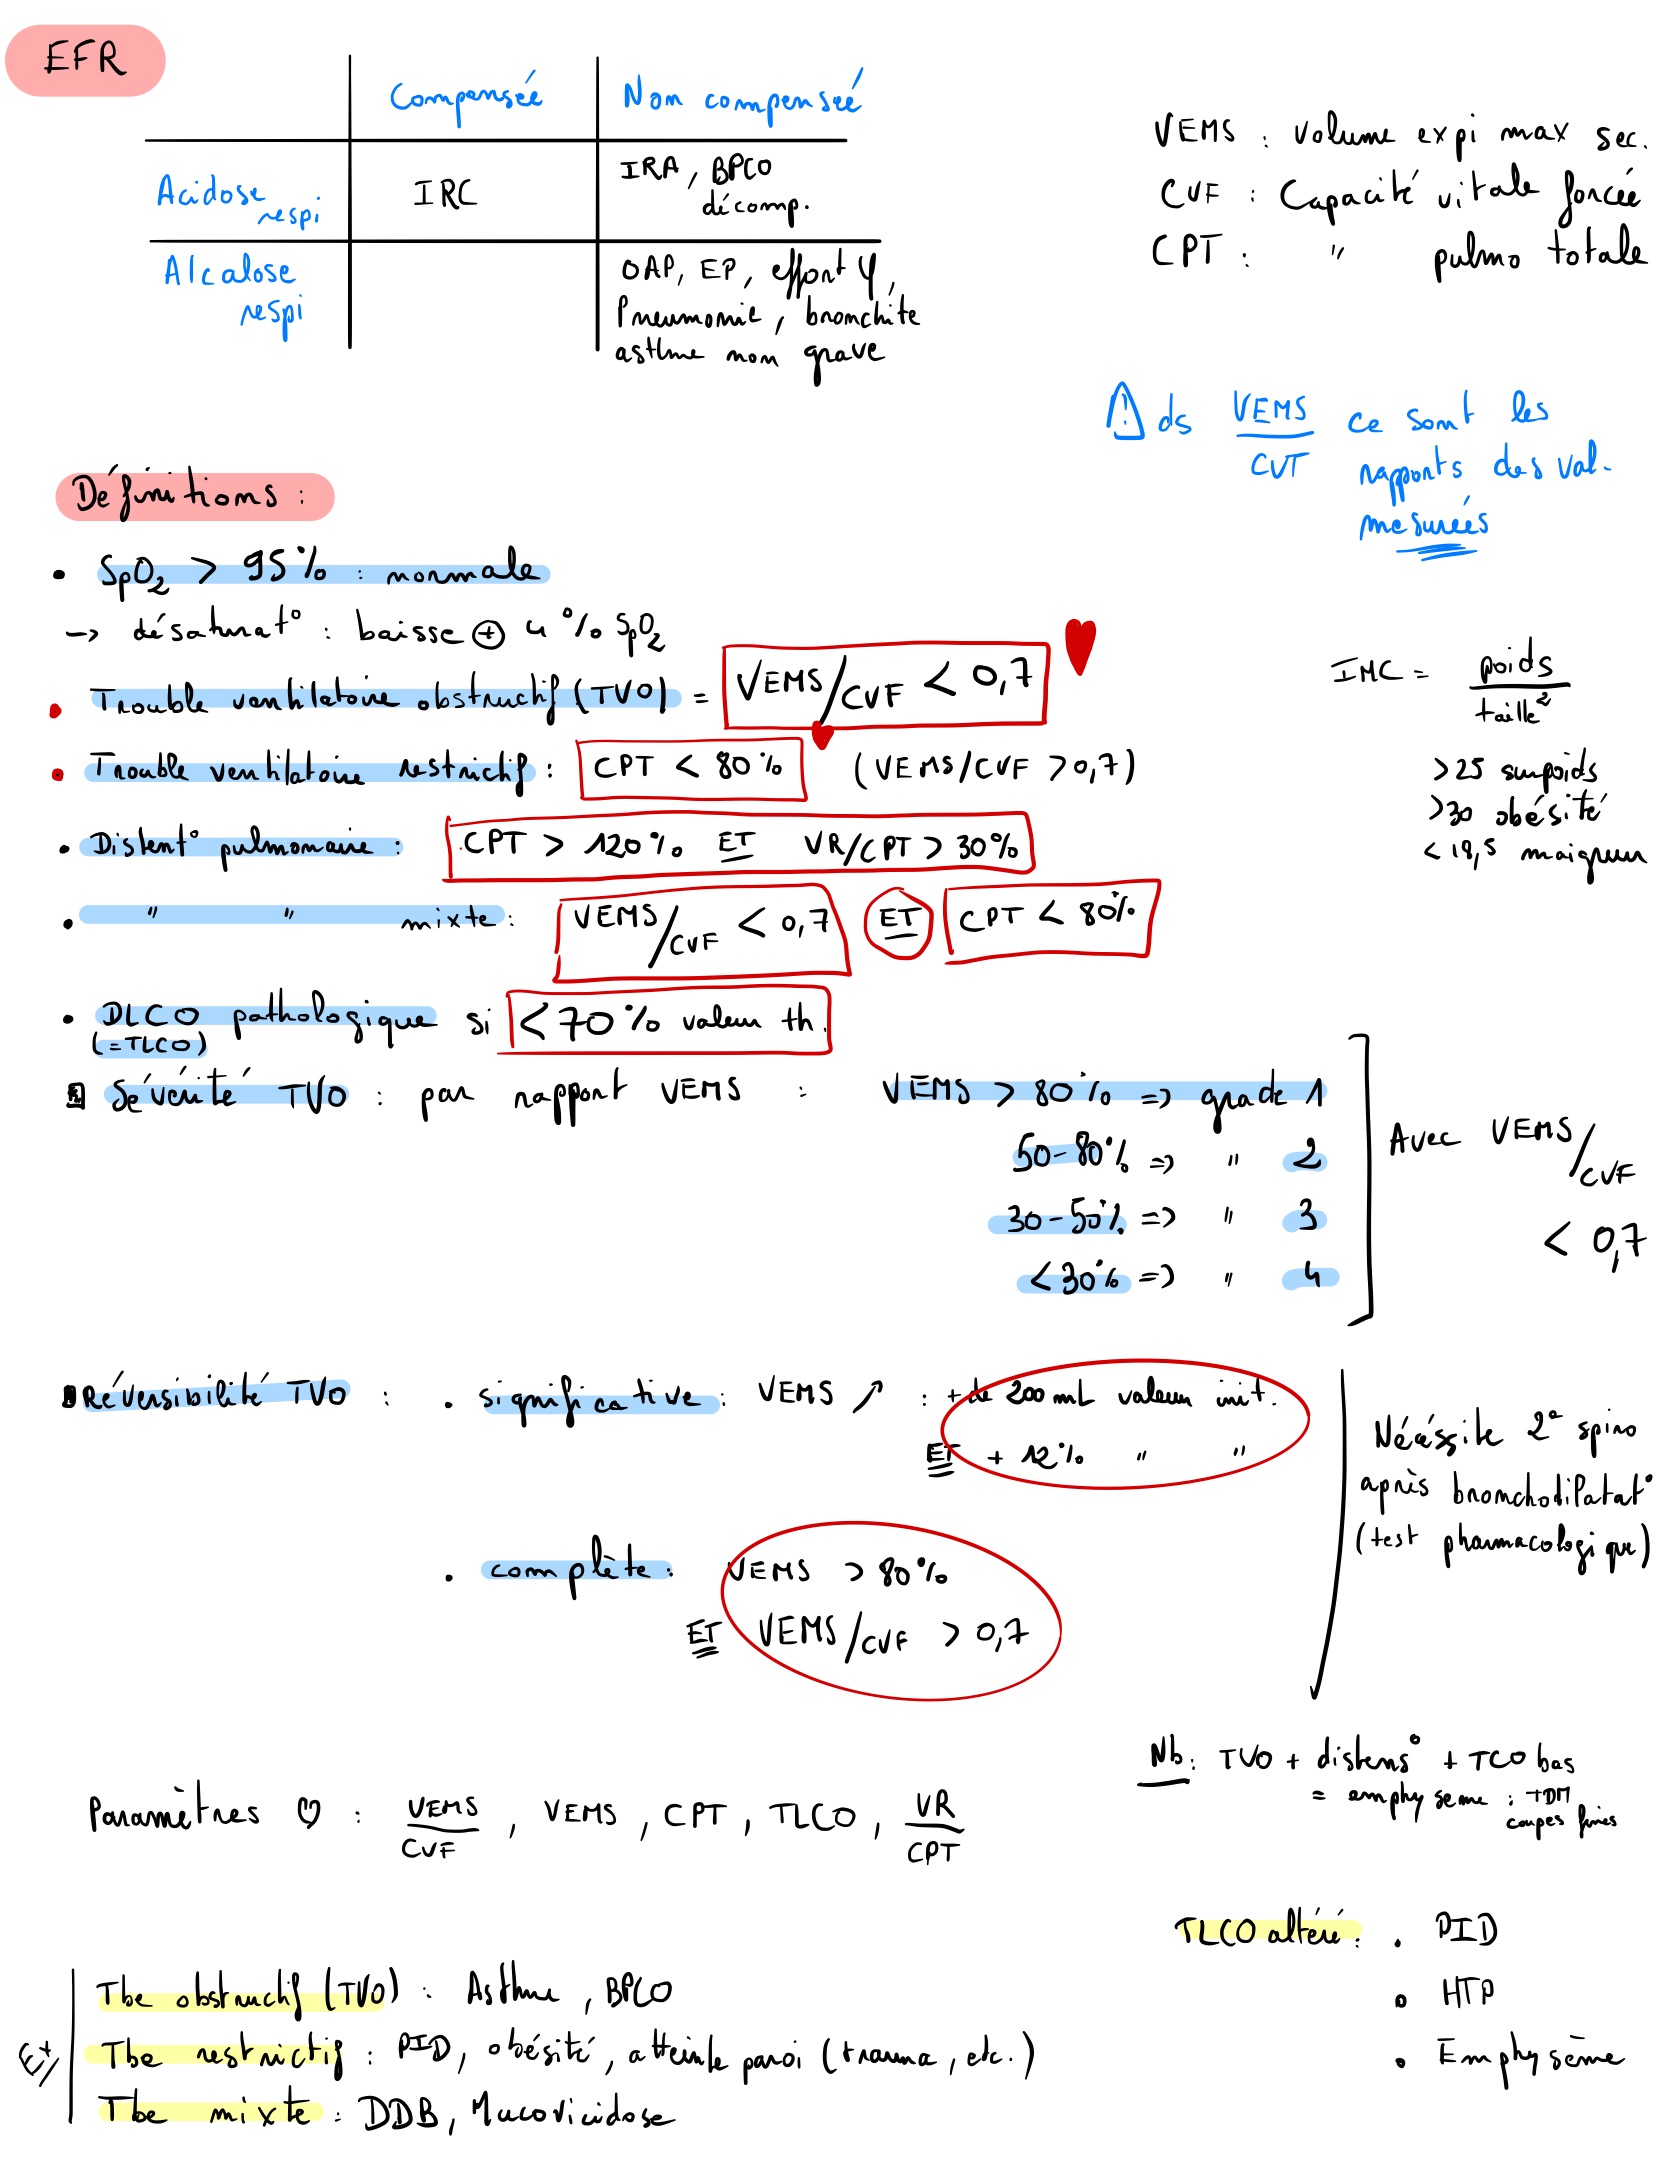 EFR
Compensée Non compensée
Acidose respi IRC IRA, BPCO décomp.
Alcalose respi OAP, EP, effort φ, Pneumonie, bronchite asthme non grave
VEMS : volume expi max sec.
CVF : Capacité vitale forcée
CPT : " pulmo totale
⚠ ds VEMS/CVT ce sont les
rapports des val.
mesurées
Définitions :
• SpO2 > 95% : normale
-> désaturat° : baisse ⊕ 4 % SpO2
• Trouble ventilatoire obstructif (TVO) = VEMS/CVF < 0,7 ♥
• Trouble ventilatoire restrictif : CPT < 80% ♥ (VEMS/CVF > 0,7)
• Distent° pulmonaire : CPT > 120% ET VR/CPT > 30%
• " " mixte : VEMS/CVF < 0,7 ET CPT < 80%
• DLCO pathologique si < 70 % valeur th.
(= TLCO)
IMC = poids/taille²
> 25 surpoids
> 30 obésité
< 18,5 maigreur
Sévérité TVO : par rapport VEMS : VEMS > 80% => grade 1
50-80% => " 2
30-50% => " 3
< 30% => " 4
Avec VEMS/CVF
< 0,7
Réversibilité TVO : • significative : VEMS ↗ : + de 200 mL valeur init.
ET + 12% " "
• complète : VEMS > 80%
ET VEMS/CVF > 0,7
Nécéssite 2° spiro
après bronchodilatat°
(test pharmacologique)
Nb : TVO + distens° + TCO bas
= emphyseme : TDM
coupes fines
Paramètres ♡ : VEMS/CVF , VEMS , CPT , TLCO , VR/CPT
TLCO altéré : • PID
• HTP
• Emphysème
Ex
Tbe obstructif (TVO) : Asthme , BPCO
Tbe restrictif : PID, obésité, atteinte paroi (trauma, etc.)
Tbe mixte : DDB, Mucovicidose